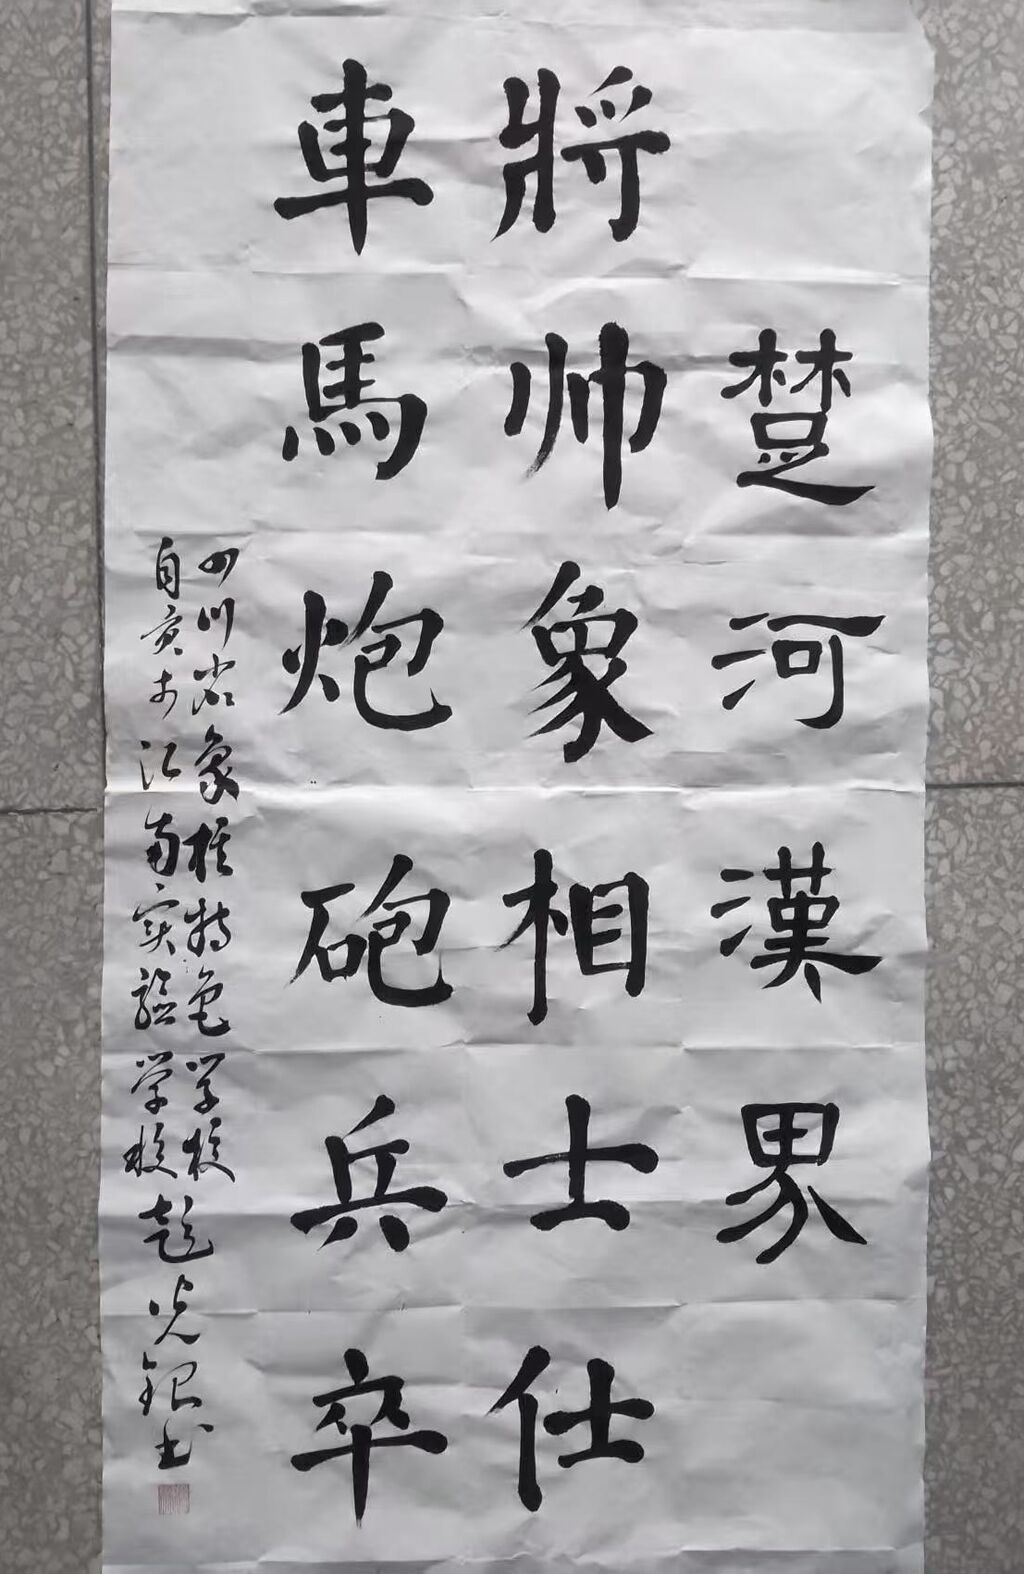 楚河漢界
將帅象相士仕
車馬炮砲兵卒
四川省象棋特色学校
自贡市江南实验学校彭光银书